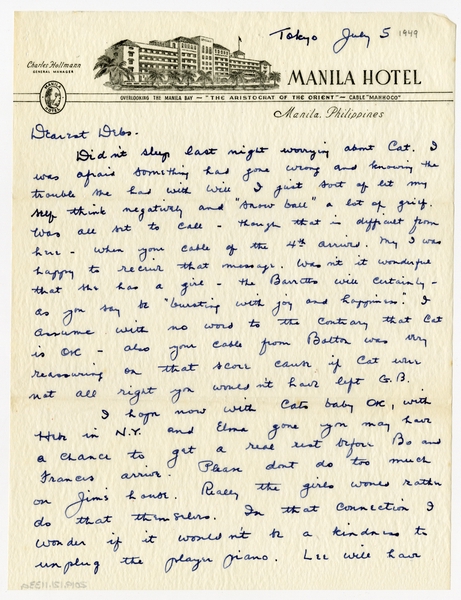 Tokyo July 5 1949
Charles Hollmann
GENERAL MANAGER
MANILA HOTEL
MANILA HOTEL
OVERLOOKING THE MANILA BAY — "THE ARISTOCRAT OF THE ORIENT" — CABLE "MANHOCO"
Manila, Philippines
Dearest Debs.
Didn't sleep last night worrying about Cat. I
was afraid something had gone wrong and knowing the
trouble she had with Will I just sort of let my
self think negatively and "snow ball" a lot of grief.
Was all set to call - though that is difficult from
here - when your cable of the 4th arrived. My I was
happy to receive that message. Wasn't it wonderful
that she has a girl - the Barretts will certainly -
as you say be "bursting with joy and happiness". I
assume with no word to the contrary that Cat
is OK - also your cable from Bolton was very
reassuring on that score cause if Cat were
not all right you wouldn't have left G.B.
I hope now with Cats baby OK, with
Herb in N.Y. and Elma gone you may have
a chance to get a real rest before Bo and
Frances arrive. Please dont do too much
on Jim's house. Really the girls would rather
do that themselves. In that connection I
wonder if it wouldn't be a kindness to
unplug the player piano. Lee will have